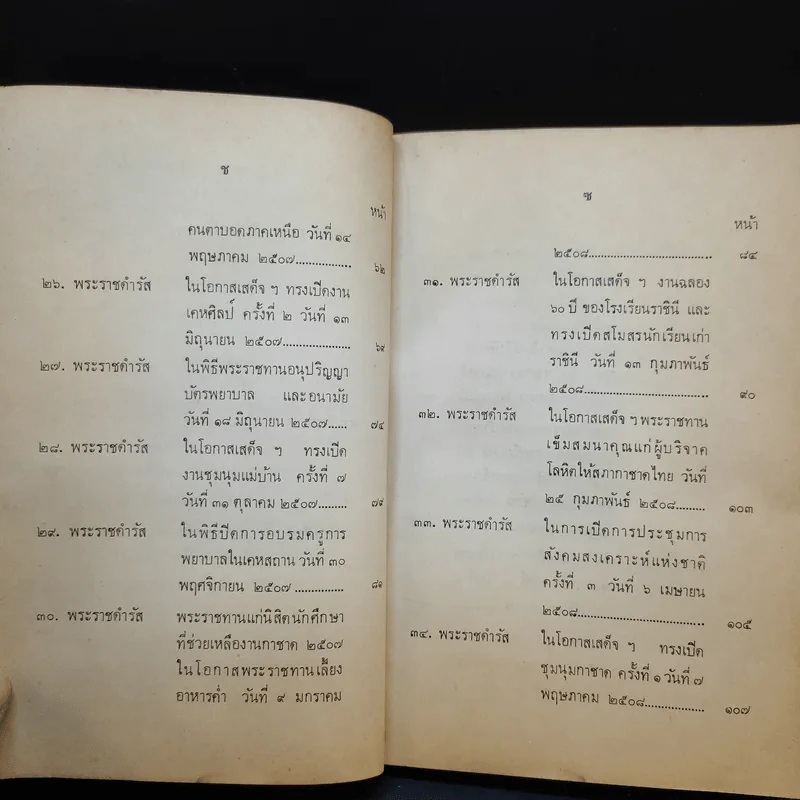 ช
หน้า
คนตาบอดภาคเหนือ วันที่ ๑๔
พฤษภาคม ๒๕๐๗................ ๖๒
๒๖. พระราชดำรัส ในโอกาสเสด็จ ฯ ทรงเปิดงาน
เคหศิลป์ ครั้งที่ ๒ วันที่ ๑๓
มิถุนายน ๒๕๐๗................ ๖๙
๒๗. พระราชดำรัส ในพิธีพระราชทานอนุปริญญา
บัตรพยาบาล และอนามัย
วันที่ ๑๘ มิถุนายน ๒๕๐๗...... ๗๔
๒๘. พระราชดำรัส ในโอกาสเสด็จ ฯ ทรงเปิด
งานชุมนุมแม่บ้าน ครั้งที่ ๗
วันที่ ๓๑ ตุลาคม ๒๕๐๗......... ๗๙
๒๙. พระราชดำรัส ในพิธีปิดการอบรมครูการ
พยาบาลในเคหสถาน วันที่ ๓๐
พฤศจิกายน ๒๕๐๗ .............. ๘๑
๓๐. พระราชดำรัส พระราชทานแก่นิสิตนักศึกษา
ที่ช่วยเหลืองานกาชาด ๒๕๐๗
ในโอกาสพระราชทานเลี้ยง
อาหารค่ำ วันที่ ๙ มกราคม
ซ
หน้า
๒๕๐๘................................... ๘๔
๓๑. พระราชดำรัส ในโอกาสเสด็จ ฯ งานฉลอง
๖๐ ปี ของโรงเรียนราชินี และ
ทรงเปิดสโมสรนักเรียนเก่า
ราชินี วันที่ ๑๓ กุมภาพันธ์
๒๕๐๘................................... ๙๐
๓๒. พระราชดำรัส ในโอกาสเสด็จ ฯ พระราชทาน
เข็มสมนาคุณแก่ผู้บริจาค
โลหิตให้สภากาชาดไทย วันที่
๒๕ กุมภาพันธ์ ๒๕๐๘......... ๑๐๓
๓๓. พระราชดำรัส ในการเปิดการประชุมการ
สังคมสงเคราะห์แห่งชาติ
ครั้งที่ ๓ วันที่ ๖ เมษายน
๒๕๐๘................................... ๑๐๕
๓๔. พระราชดำรัส ในโอกาสเสด็จ ฯ ทรงเปิด
ชุมนุมกาชาด ครั้งที่ ๑ วันที่ ๗
พฤษภาคม ๒๕๐๘................. ๑๐๗